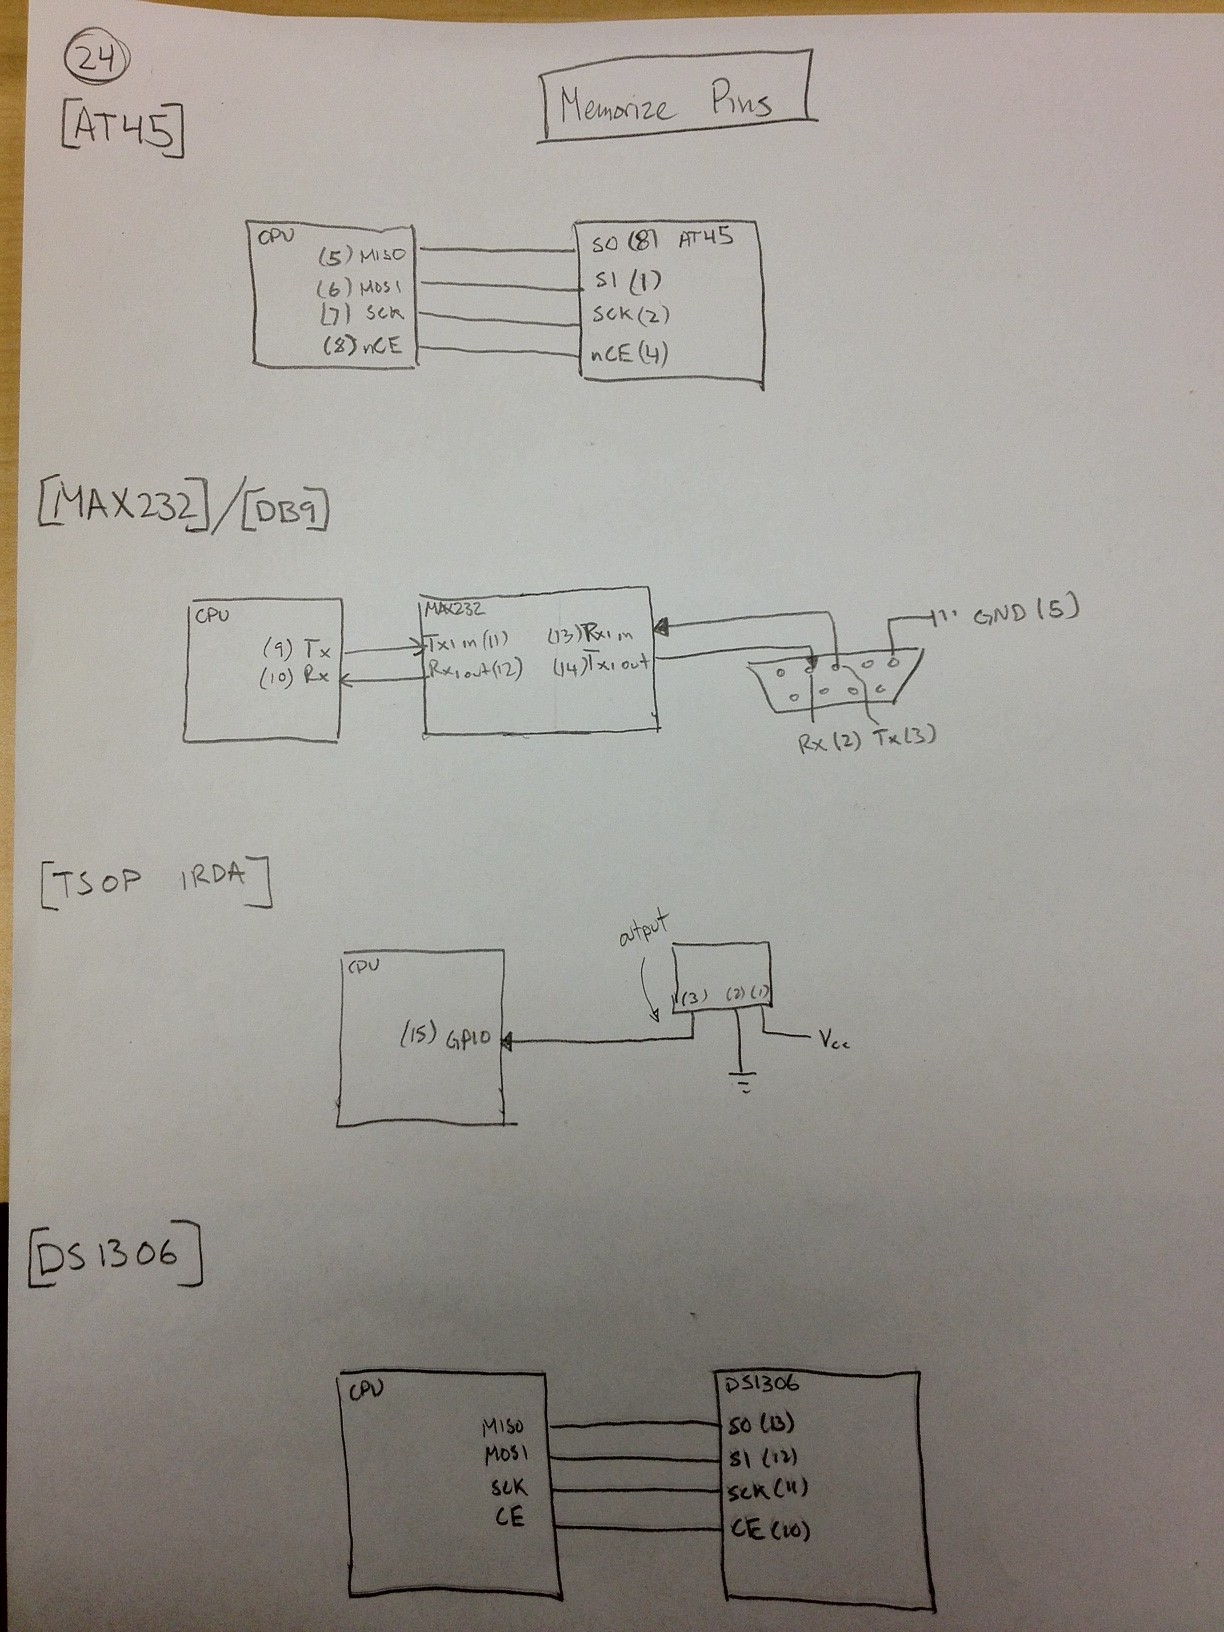 24
[AT45]
Memorize Pins
CPU
(5) MISO
(6) MOSI
(7) SCK
(8) nCE
SO (8) AT45
SI (1)
SCK (2)
nCE (4)
[MAX232]/[DB9]
CPU
(9) Tx
(10) Rx
MAX232
Tx1 in (11) (13) Rx1 in
Rx1 out (12) (14) Tx1 out
GND (5)
Rx (2) Tx (3)
[TSOP IRDA]
CPU
(15) GPIO
output
(3) (2) (1)
Vcc
[DS1306]
CPU
MISO
MOSI
SCK
CE
DS1306
SO (13)
SI (12)
SCK (11)
CE (10)